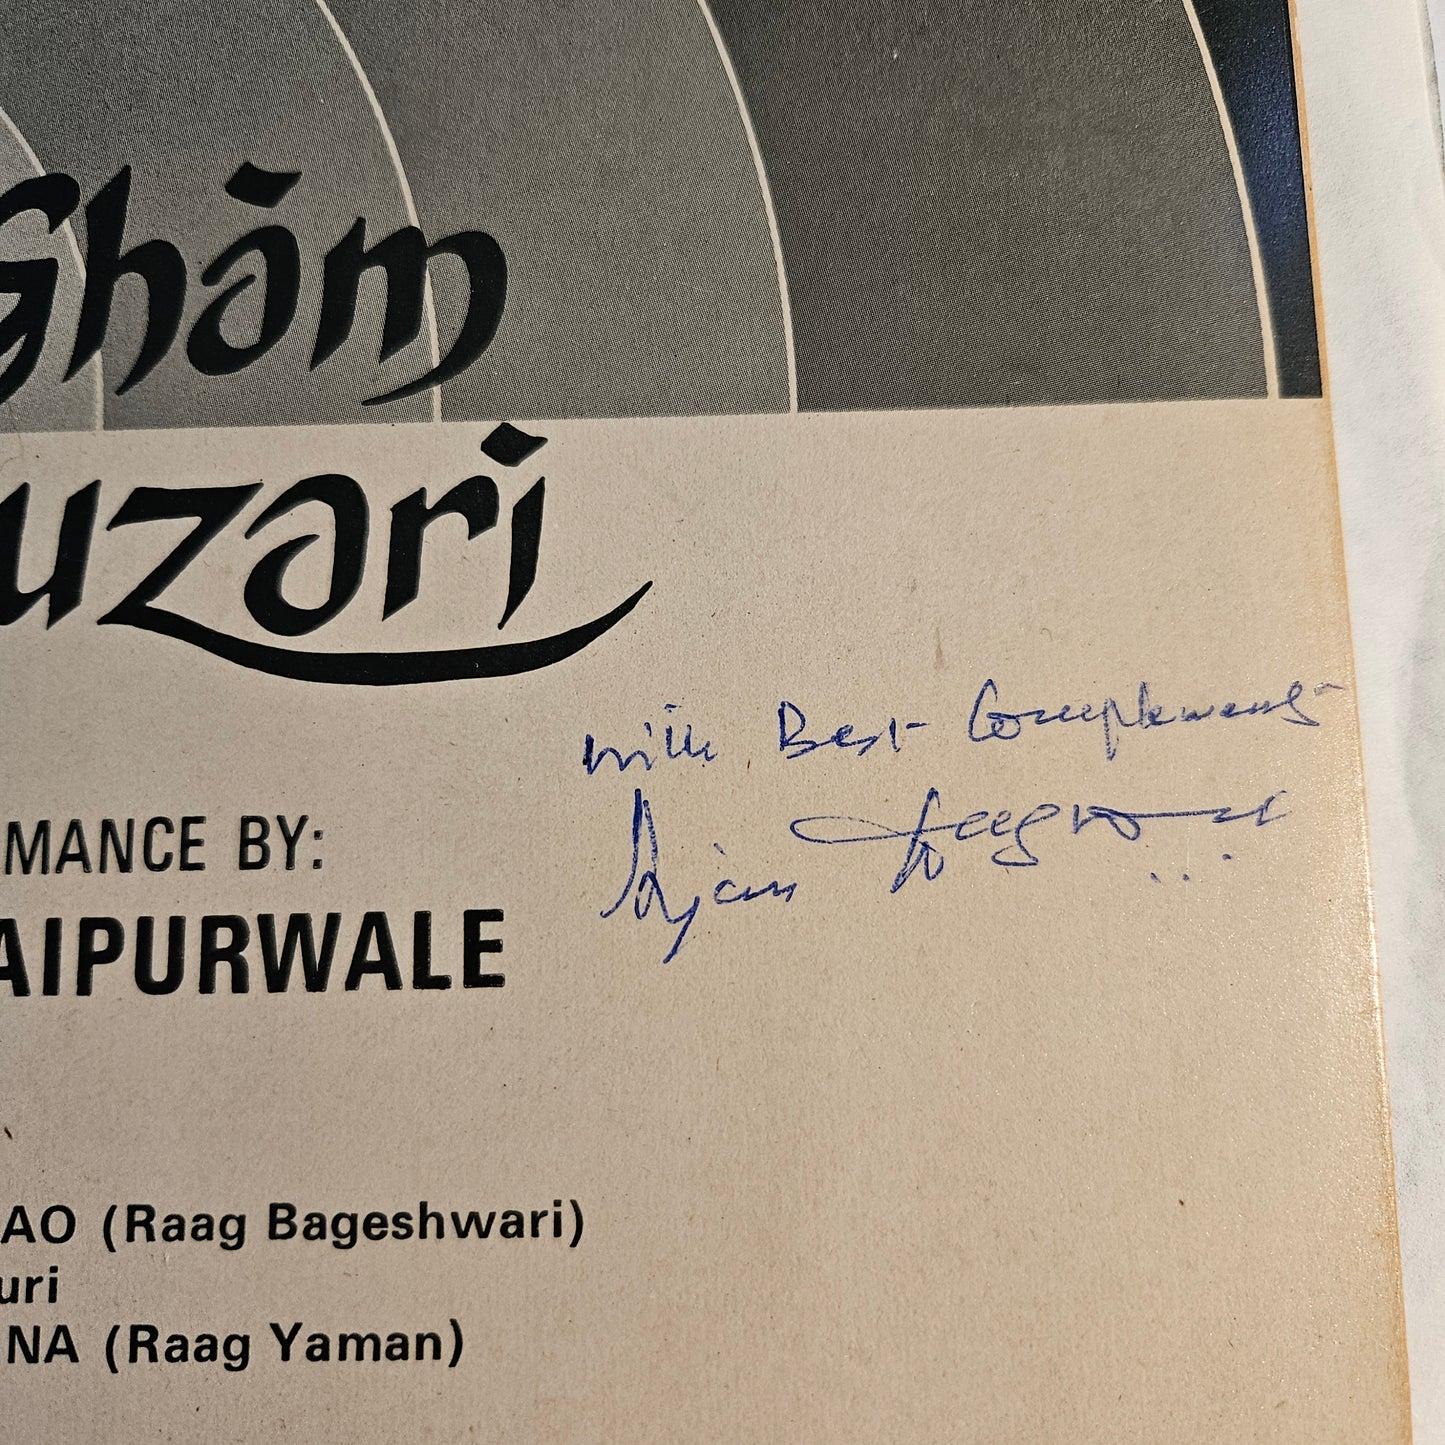 Ghām
uzari
With Best Compliments
Arjan
MANCE BY:
AIPURWALE
AO (Raag Bageshwari)
uri
NA (Raag Yaman)